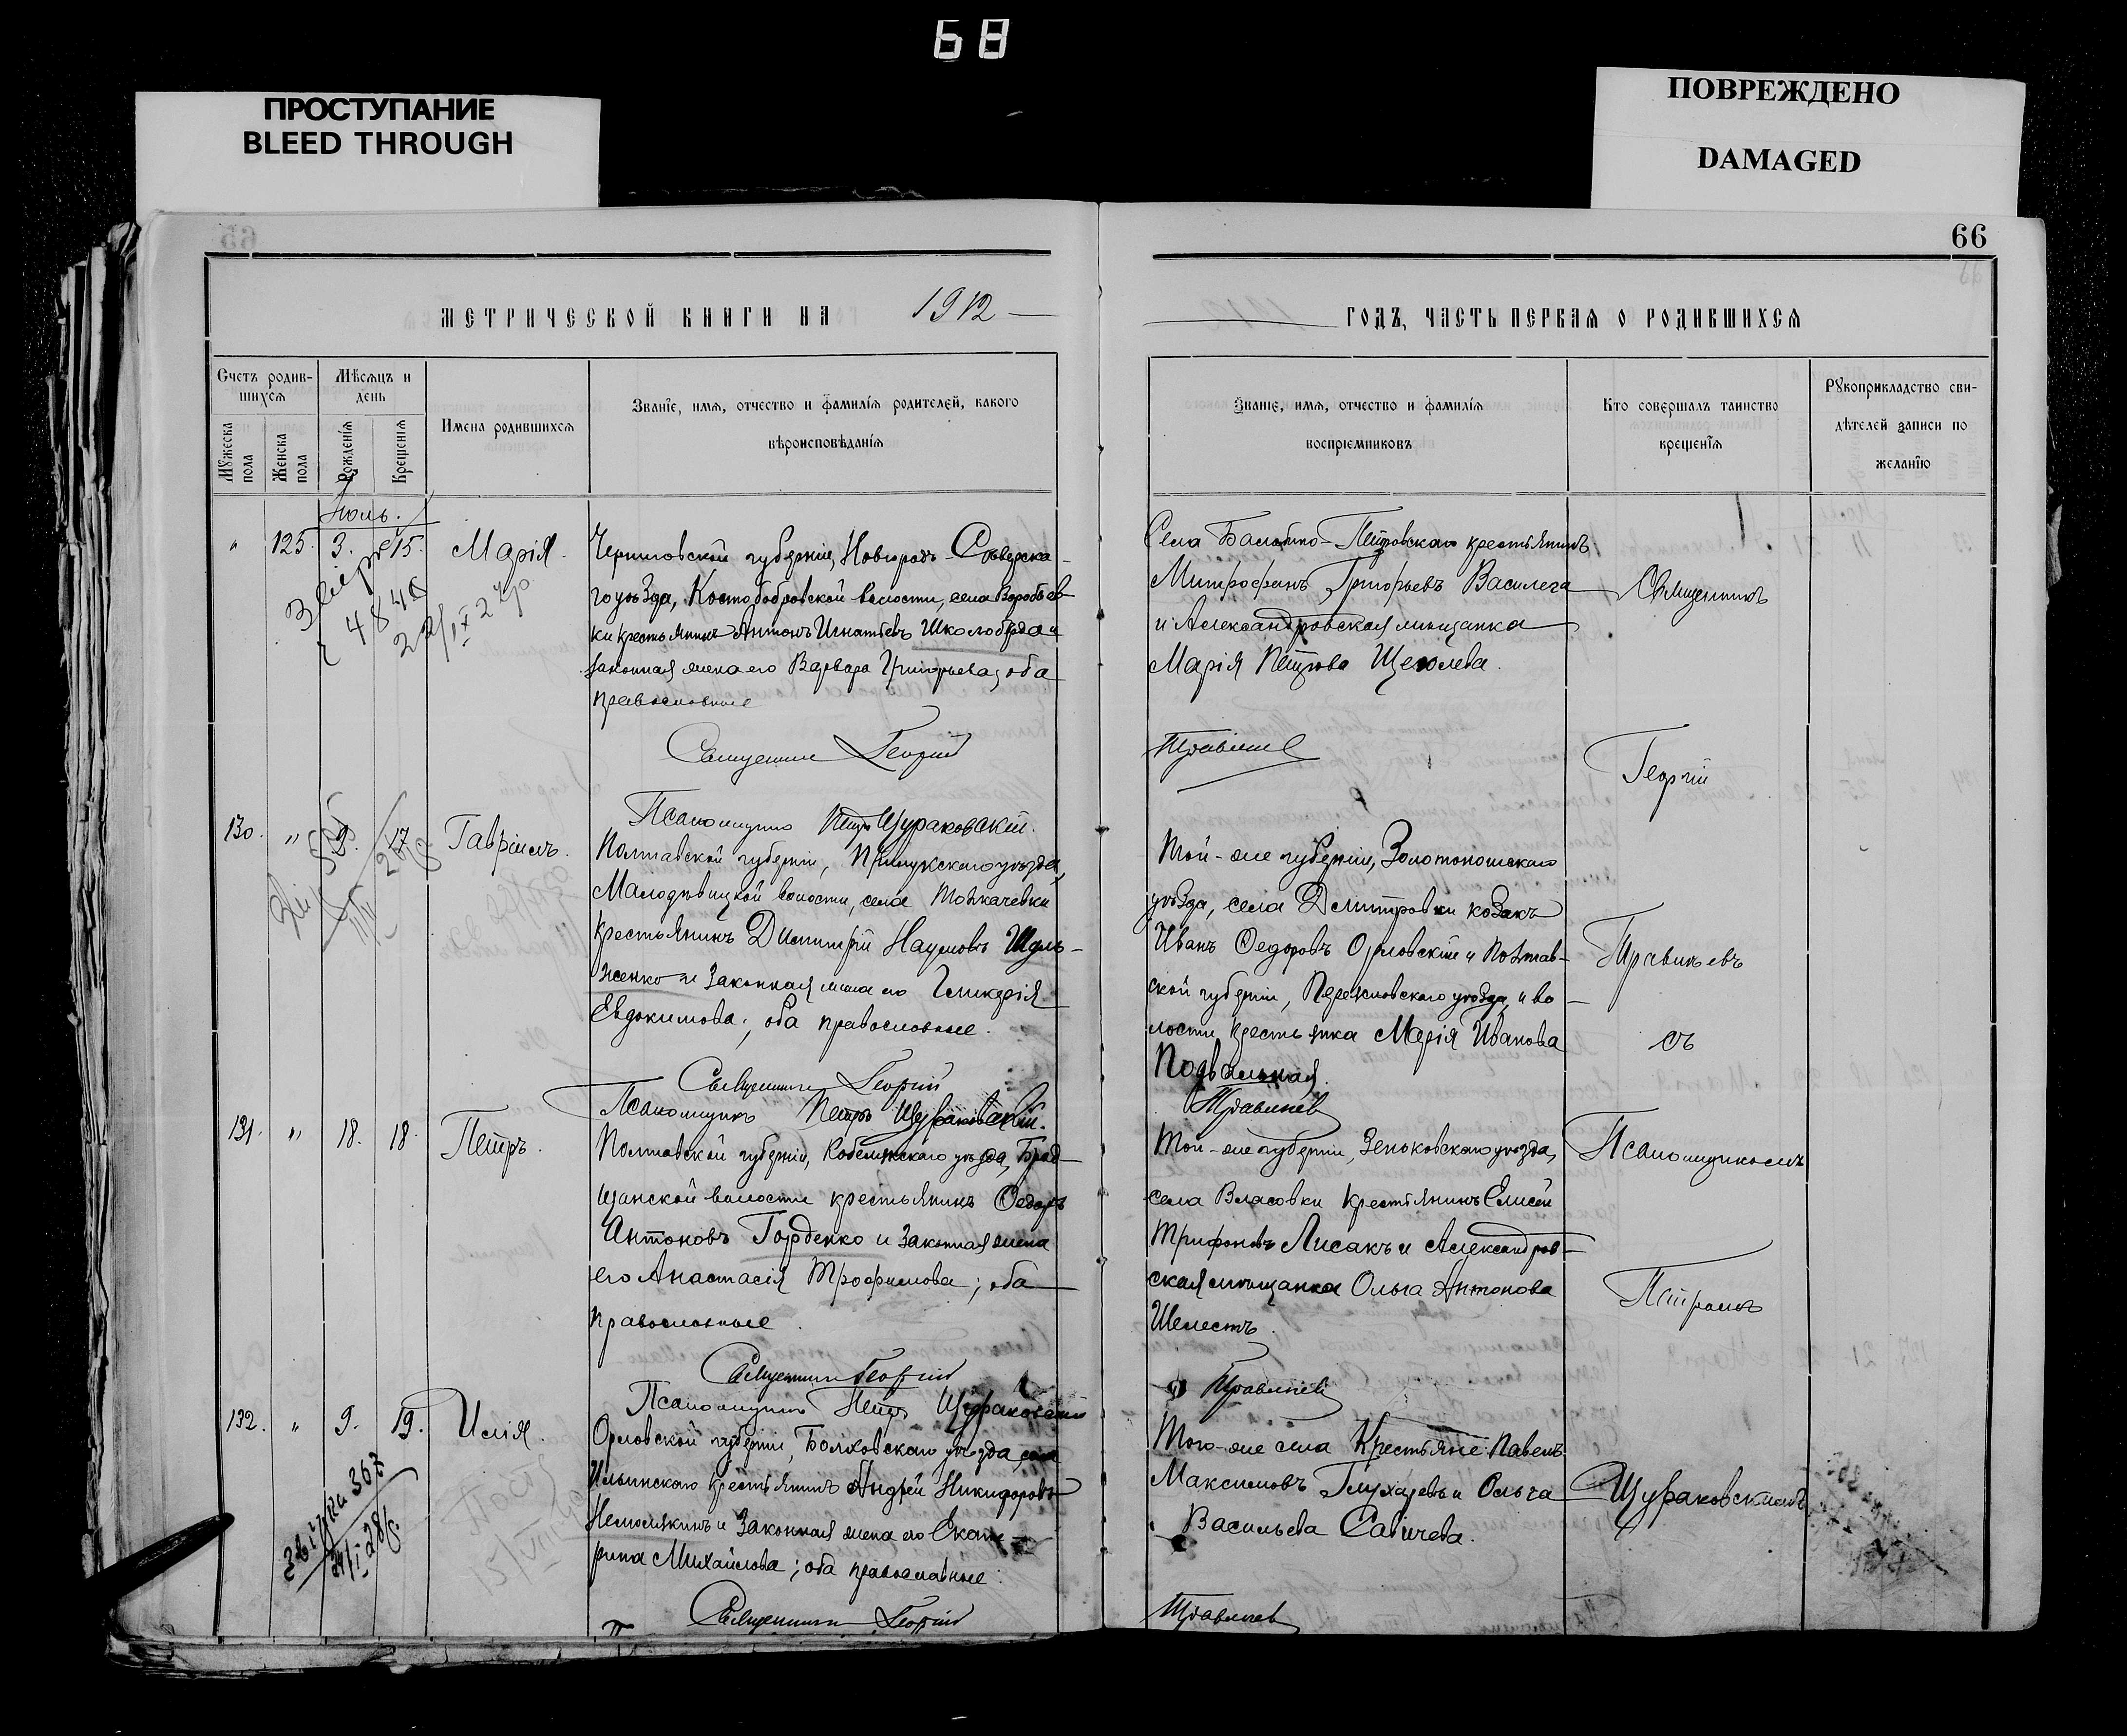 68
ПРОСТУПАНИЕ
BLEED THROUGH
ПОВРЕЖДЕНО
DAMAGED
66
МЕТРИЧЕСКОЙ КНИГИ НА 1912
ГОДЪ, ЧАСТЬ ПЕРВАЯ О РОДИВШИХСЯ
Счетъ родив-
шихся
Мужеска пола
Женска пола
Мѣсяцъ и
день
Рожденія
Крещенія
Имена родившихся
Званіе, имя, отчество и фамилія родителей, какого
вѣроисповѣданія
Званіе, имя, отчество и фамилія
воспріемниковъ
Кто совершалъ таинство
крещенія
Рукоприкладство сви-
дѣтелей записи по
желанію
Іюль.
" 125. 3. 15. Марія.
Черниговской губерніи, Новгородъ-Сѣверска-
го уѣзда, Костобобровской волости, села Воробьев-
ки крестьянинъ Антонъ Игнатьевъ Школоберда и
законная жена его Варвара Григорьева; оба
православные
Священникъ Георгій
Псаломщикъ Петръ Щураковскій.
Села Балабино-Петровскаго крестьянинъ
Митрофанъ Григорьевъ Василега
и Александровская мѣщанка
Марія Петрова Щеголева.
Травинев
Священникъ
Георгій
Травиньевъ
съ
Псаломщикомъ
Петромъ
Щураковскимъ
130. " 9. 17. Гавріилъ.
Полтавской губерніи, Прилукскаго уѣзда,
Малодѣвицкой волости, села Толкачевки
крестьянинъ Димитрій Наумовъ Шуль-
женко и законная жена его Гликерія
Евдокимова; оба православные.
Священникъ Георгій
Псаломщикъ Петръ Щураковскій.
Той-же губерніи, Золотоношскаго
уѣзда, села Дмитровки козакъ
Иванъ Ѳедоровъ Орловскій и Полтав-
ской губерніи, Переяславскаго уѣзда, и во-
лости крестьянка Марія Иванова
Подвальная.
Травинев
131. " 18. 18. Петръ.
Полтавской губерніи, Кобелякскаго уѣзда,
волости крестьянинъ Ѳедоръ
Антоновъ Горденко и законная жена
его Анастасія Трофимова; оба
православные.
Священникъ Георгій
Псаломщикъ Петръ Щураковскій
Той-же губерніи, Зеньковскаго уѣзда,
села Власовки крестьянинъ Елисей
Трифоновъ Лисакъ и Александров-
ская мѣщанка Ольга Антонова
Шелестъ.
Травинев
132. " 9. 19. Илія.
Орловской губерніи, Болховскаго уѣзда, села
Ильинскаго крестьянинъ Андрей Никифоровъ
и законная жена его Екате-
рина Михайлова; оба православные.
Священникъ Георгій
Того-же села крестьяне Павелъ
Максимовъ Глухаревъ и Ольга
Васильева Савичева.
Травинев